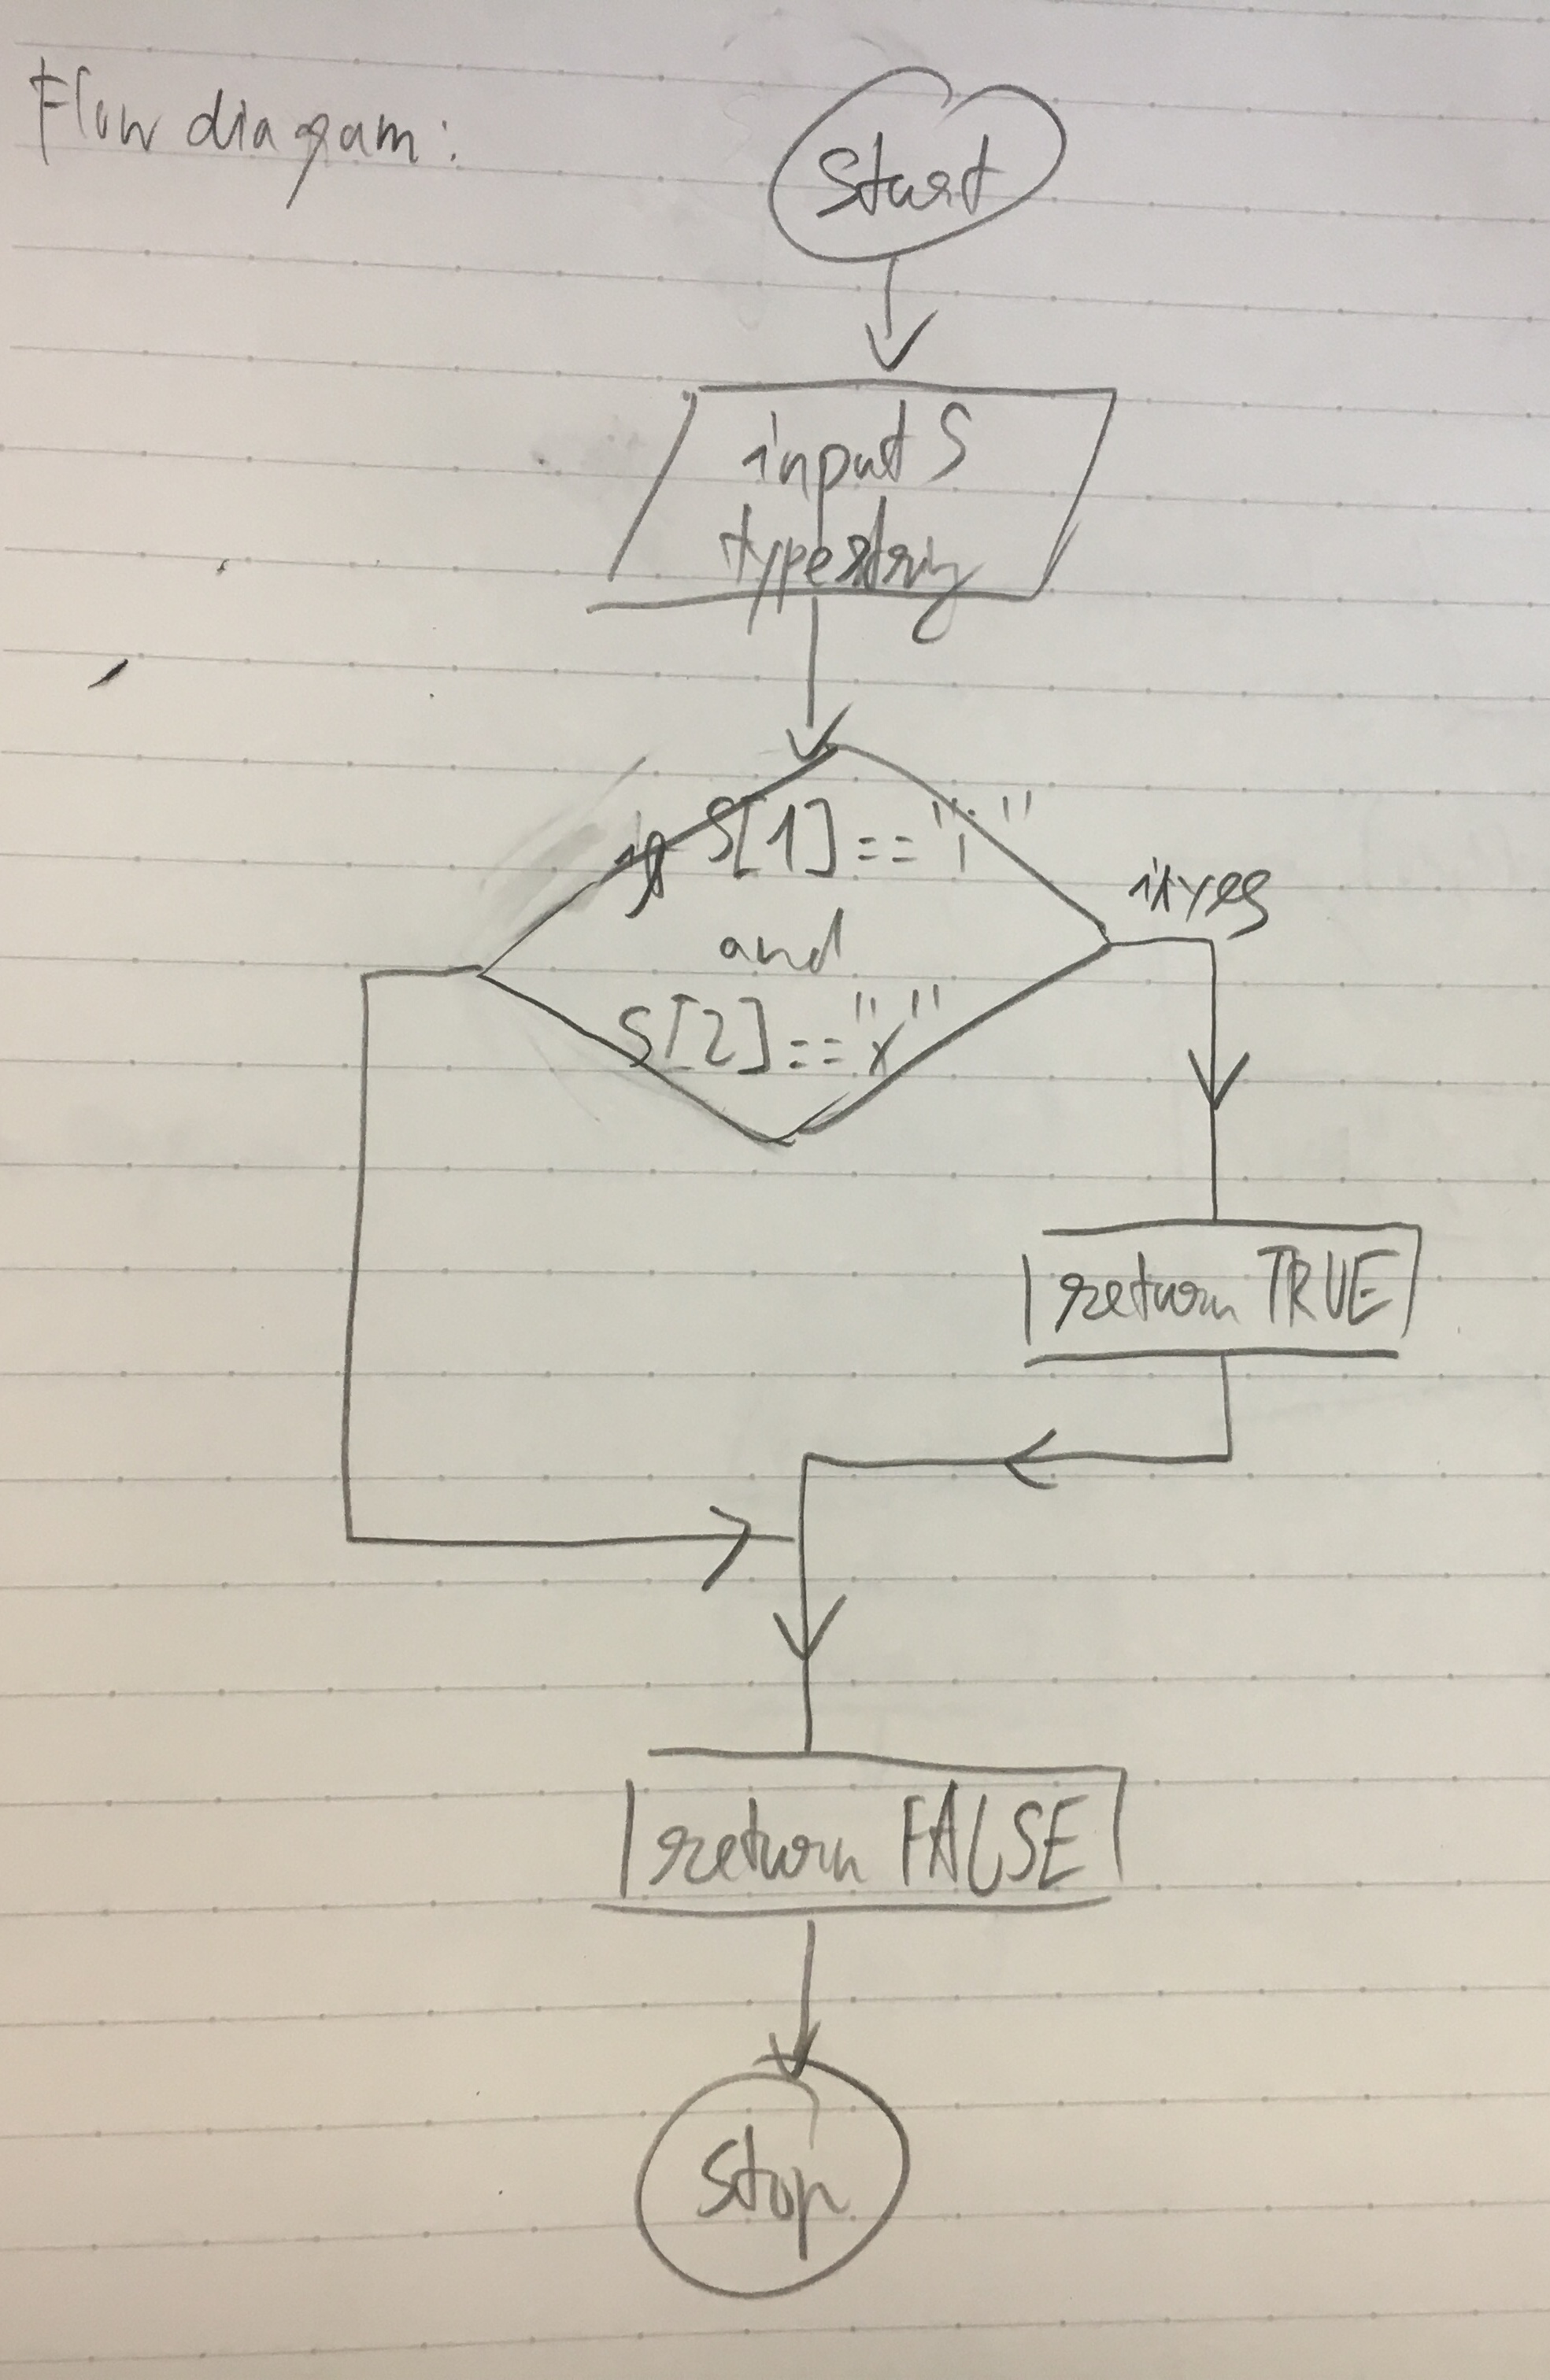 Flow diagram:
Start
input S
type string
if S[1]=="i"
and
S[2]=="x"
if yes
return TRUE
return FALSE
Stop